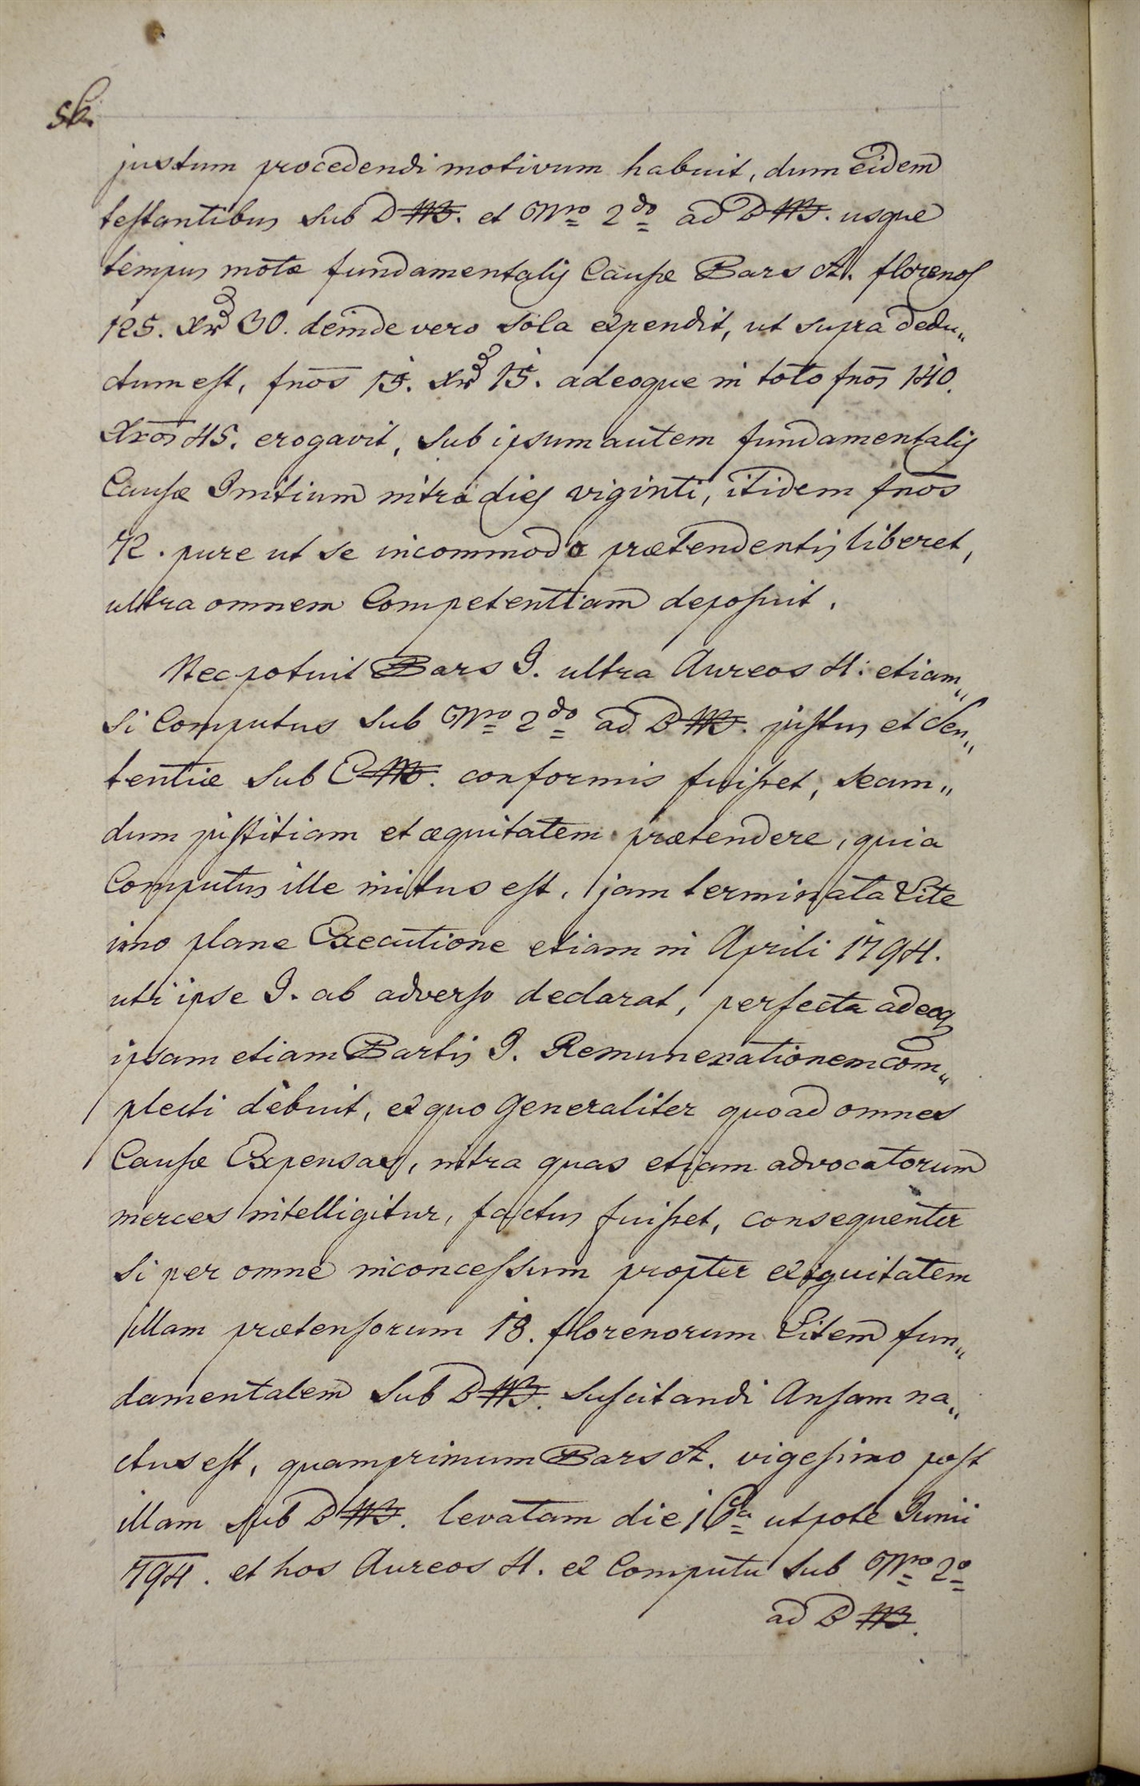 justum procedendi motivum habuit, dum eidem
testantibus sub D et Nro 2do ad D usque
tempus motæ fundamentalis Causæ Pars A. florenos
125. Xros 30. deinde vero sola expendit, ut supra dedu„
ctum est, fnos 15. Xros 15. adeoque in toto fnos 140.
Xros 45. erogavit, sub ipsum autem fundamentalis
Causæ Initium intra dies viginti, itidem fnos
72. pure ut se incommodo prætendentis liberet,
ultra omnem Competentiam deposuit.
Nec potuit Pars I. ultra Aureos 4. etiam„
si Computus sub Nro 2do ad D justus et Sen„
tentiæ sub C conformis fuisset, secun„
dum justitiam et æquitatem prætendere, quia
Computus ille initus est, jam terminata Lite
imo plane Executione etiam in Aprili 1794.
uti ipse I. ab adverso declarat, perfecta adeoq
ipsam etiam Partis I. Remunerationem com„
plecti debuit, ex quo generaliter quoad omnes
Causæ Expensas, intra quas etiam advocatorum
merces intelligitur, factus fuisset, consequenter
si per omne inconcessum propter exiguitatem
illam prætensorum 18. florenorum Litem fun„
damentalem sub D suscitandi Ansam na„
ctus est, quamprimum Pars A. vigesimo post
illam sub D levatam die 16ta utpote Junii
794. et hos Aureos 4. ex Computu sub Nro 2o
ad D